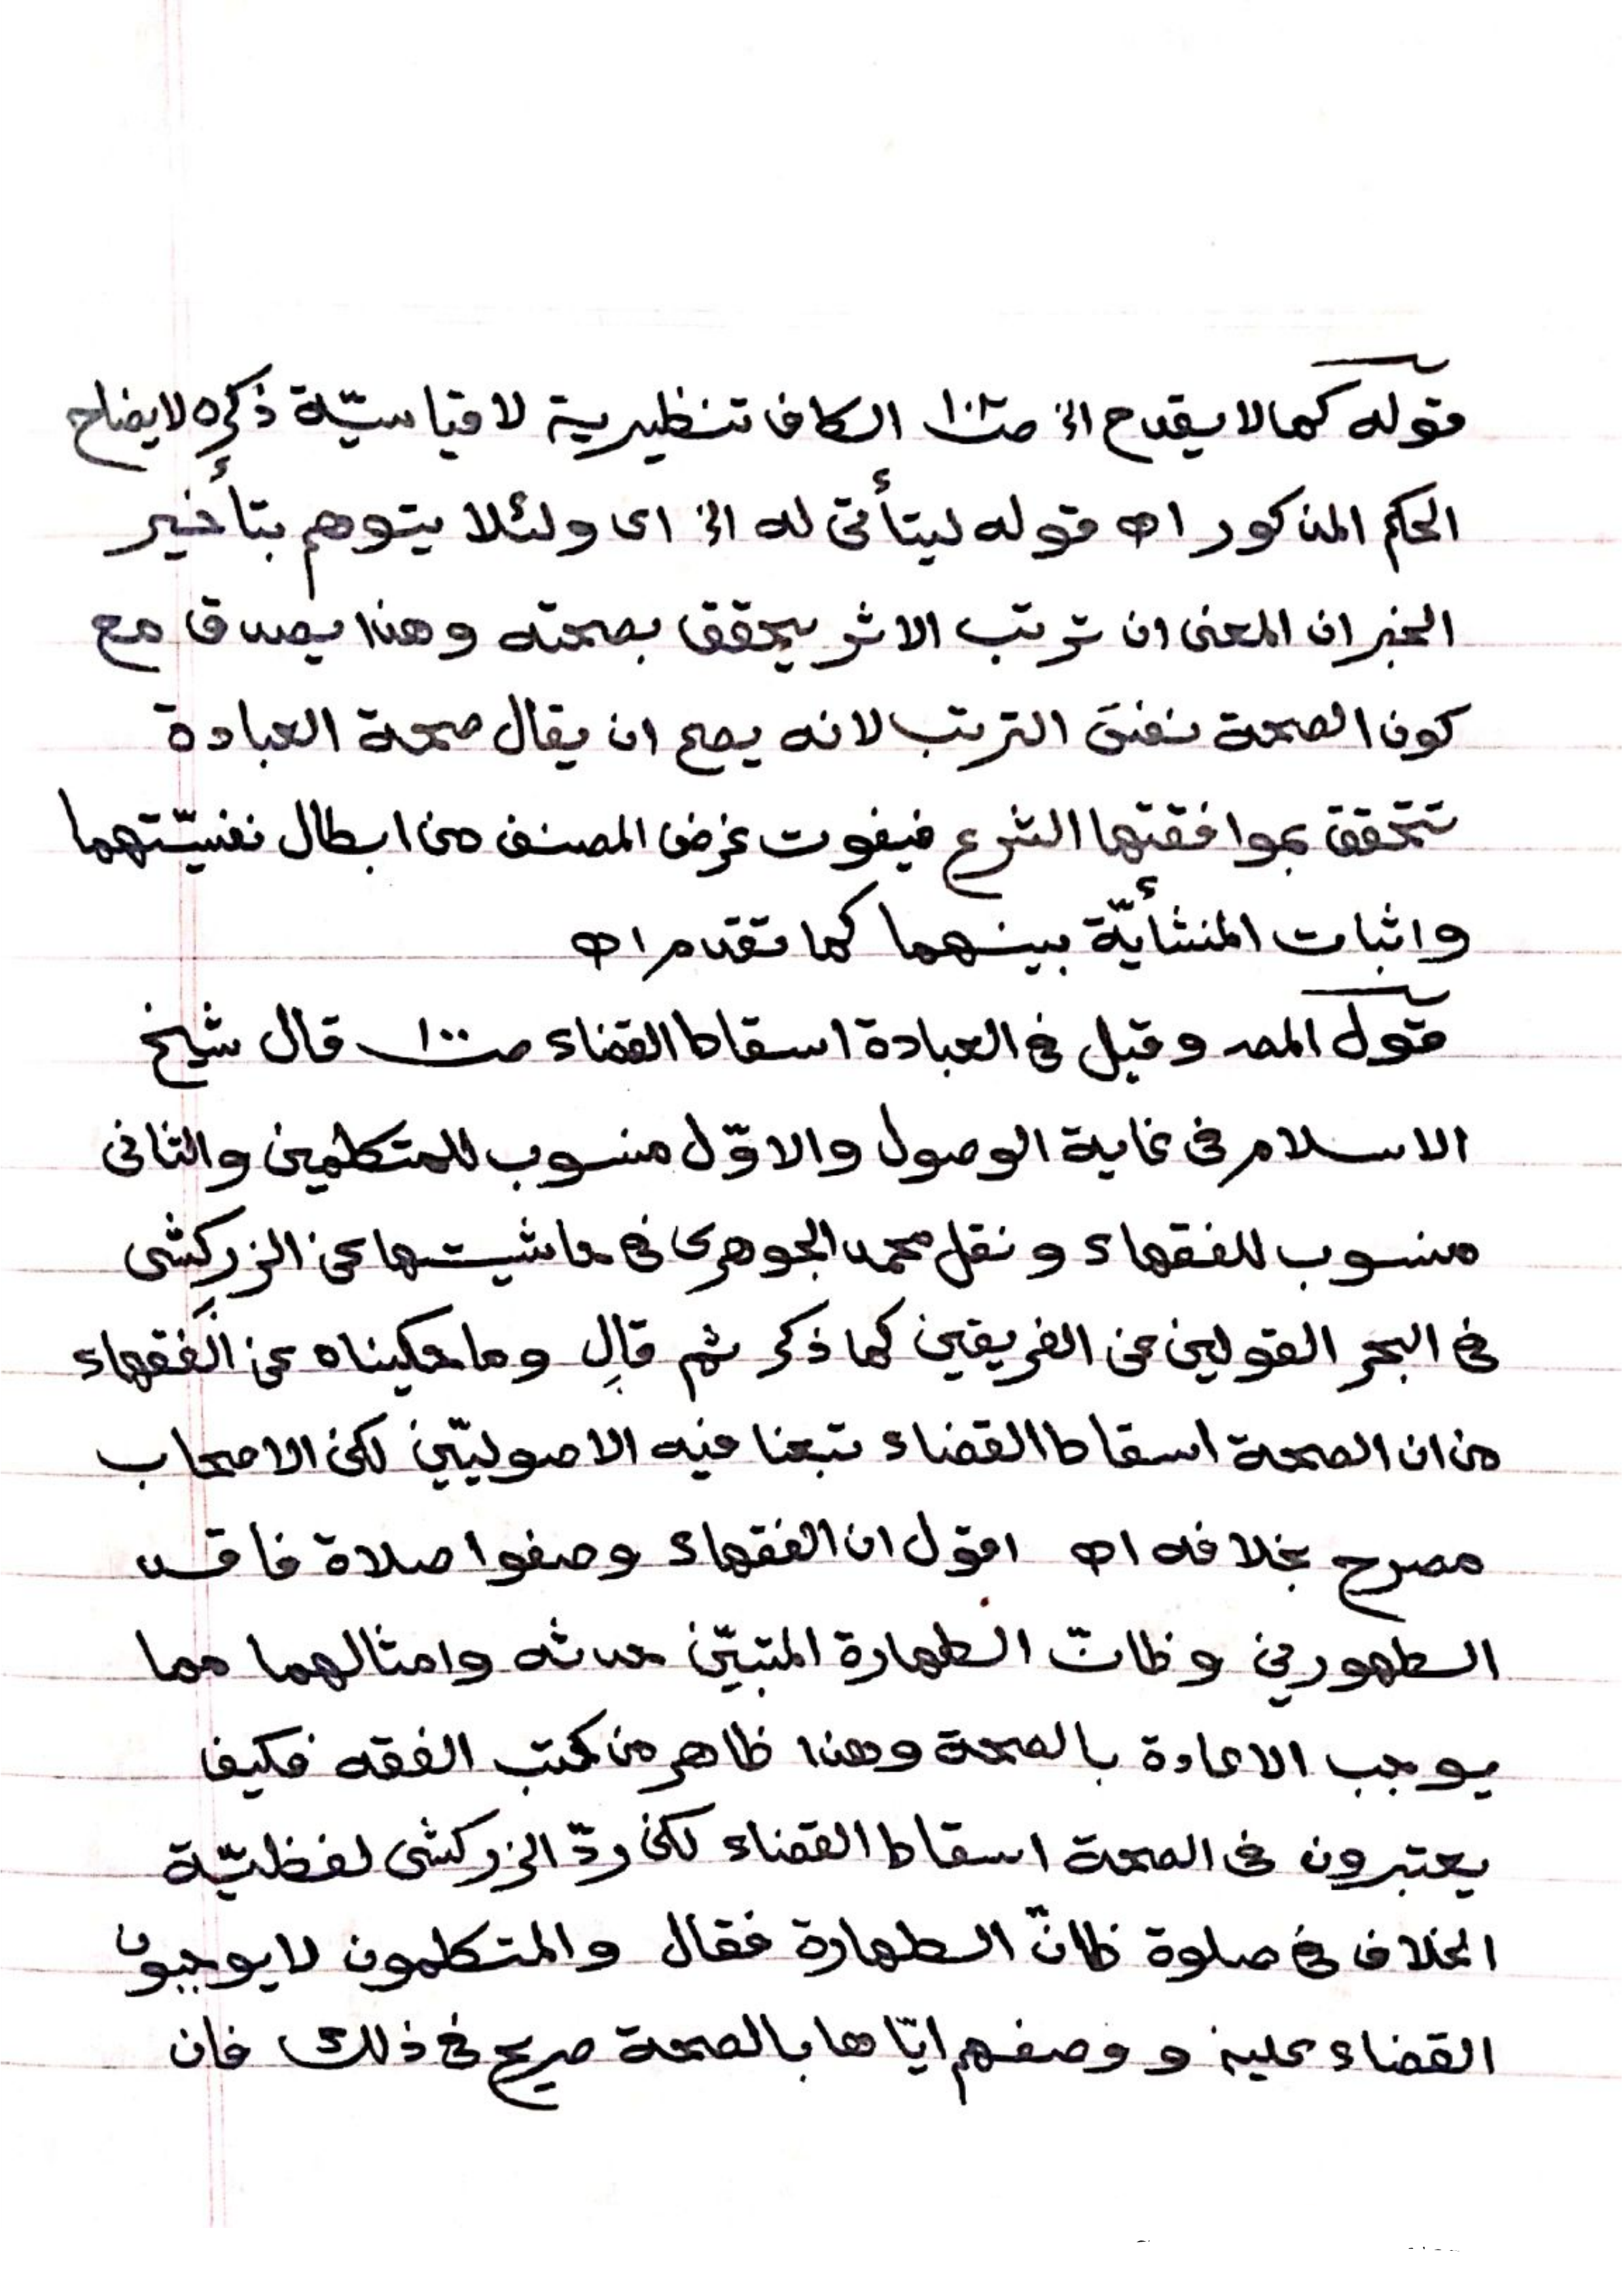 قوله كما لا يقدح الخ صـ١٠١ الكاف تنظيرية لا قياسيّة ذكره لايضاح
الحكم المذكور اه قوله ليتأتى له الخ اى ولئلا يتوهم بتأخير
الخبر ان المعنى ان ترتب الاثر يتحقق بصحته وهذا يصدق مع
كون الصحة نفس الترتب لانه يصح ان يقال صحة العبادة
تتحقق بموافقتها الشرع فيفوت غرض المصنف من ابطال نفسيّتهما
واثبات المنشأيّة بينهما كما تقدم اه
قول المصـ وقيل فى العبادة اسقاط القضاء صـ١٠٠ قال شيخ
الاسلام فى غاية الوصول والاوّل منسوب للمتكلمين والثانى
منسوب للفقهاء ونقل محمد الجوهرى فى حاشيتها عن الزركشى
فى البحر القولين عن الفريقين كما ذكر ثم قال وما حكيناه عن الفقهاء
من ان الصحة اسقاط القضاء تبعنا فيه الاصوليّين لكن الاصحاب
مصرح بخلافه اه اقول ان الفقهاء وصفوا صلاة فاقد
الطهورين وظانّ الطهارة المتبيّن حدثه وامثالهما مما
يوجب الاعادة بالصحة وهذا ظاهر من كتب الفقه فكيف
يعتبرون فى الصحة اسقاط القضاء لكن ردّ الزركشى لفظيّة
الخلاف فى صلوة ظانّ الطهارة فقال والمتكلمون لا يوجبون
القضاء عليه ووصفهم ايّاها بالصحة صريح فى ذلك فان